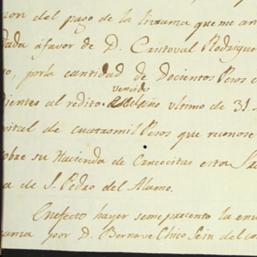 con del paso de la
dada a favor de D. Cristoval Rodrigue
ro, por la cantidad de Docientos Pesos c
dientes al redito vencido ultimo de 31
pital de cuatro mil Pesos que reconose
sobre su Hacienda de
a de S. Pedro del Alamo.
En efecto hayer seme presento la
por D. Bernave Chico Sein del co